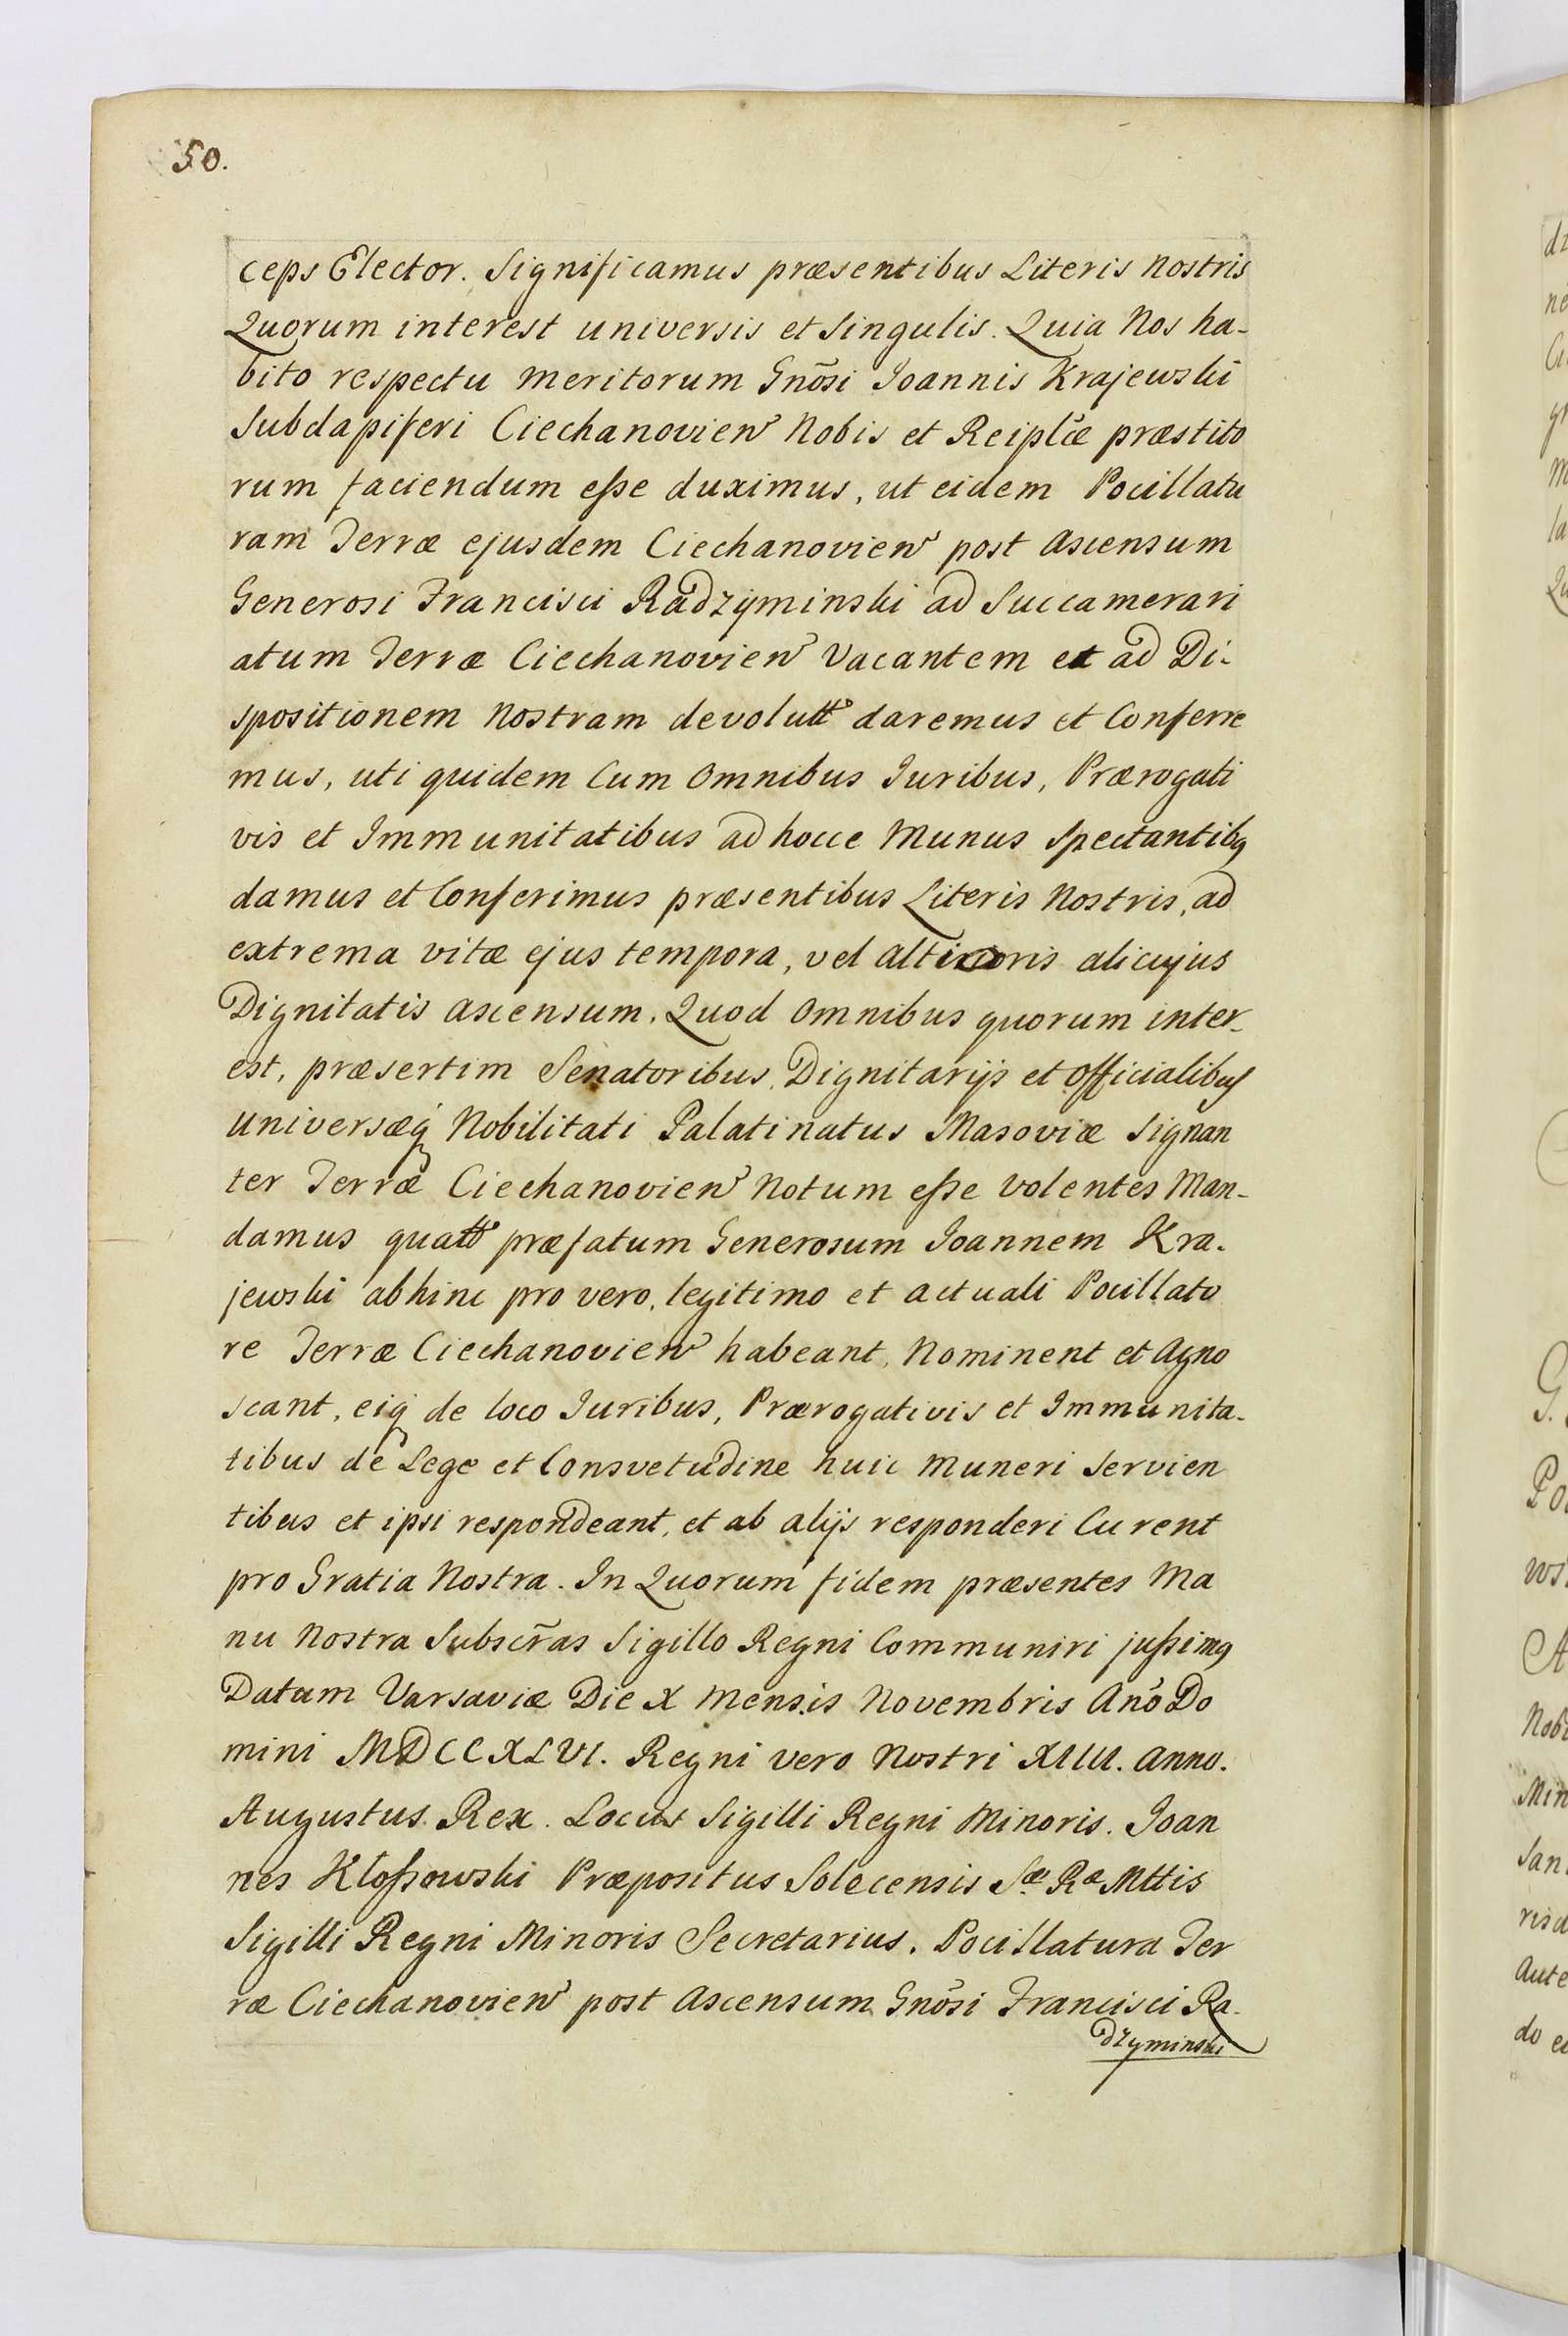 50.
ceps Elector. Significamus præsentibus Literis Nostris
Quorum interest universis et singulis. Quia Nos ha-
bito respectu meritorum Gnõsi Joannis Krajewski
Subdapiferi Ciechanovien Nobis et Reiplcæ præstito
rum faciendum eße duximus, ut eidem Pocillatu
ram Terræ ejusdem Ciechanovien post Ascensum
Generosi Francisci Radzyminski ad Succamerari
atum Terræ Ciechanovien Vacantem et ad Di-
spositionem Nostram devolutt daremus et Conferre
mus, uti quidem Cum Omnibus Juribus, Prærogati
vis et Immunitatibus ad hocce Munus Spectantibq
damus et Conferimus præsentibus Literis Nostris, ad
extrema vitæ ejus tempora, vel altioris alicujus
Dignitatis ascensum. Quod Omnibus quorum inter-
est, præsertim Senatoribus, Dignitarijs et Officialibus
universæq Nobilitati Palatinatus Masoviæ Signan
ter Terræ Ciechanovien Notum eße volentes Man-
damus quatt præfatum Generosum Joannem Kra-
jewski abhinc pro vero, legitimo et actuali Pocillato
re Terræ Ciechanovien habeant, Nominent et Agno
scant, eiq de loco Juribus, Prærogativis et Immunita-
tibus de Lege et Consvetudine huic muneri Servien
tibus et ipsi respondeant, et ab alijs responderi Curent
pro Gratia Nostra. In Quorum fidem præsentes Ma
nu Nostra Subscr̃as Sigillo Regni Communiri jußimq
Datum Varsaviæ Die X Mensis Novembris Anõ Do
mini MDCCXLVI. Regni vero Nostri XIIII. Anno.
Augustus Rex. Locus Sigilli Regni Minoris. Joan
nes Kloßowski Præpositus Solecensis Sæ Ræ Mttis
Sigilli Regni Minoris Secretarius. Pocillatura Ter
ræ Ciechanovien post Ascensum Gnõsi Francisci Ra-
dzyminski